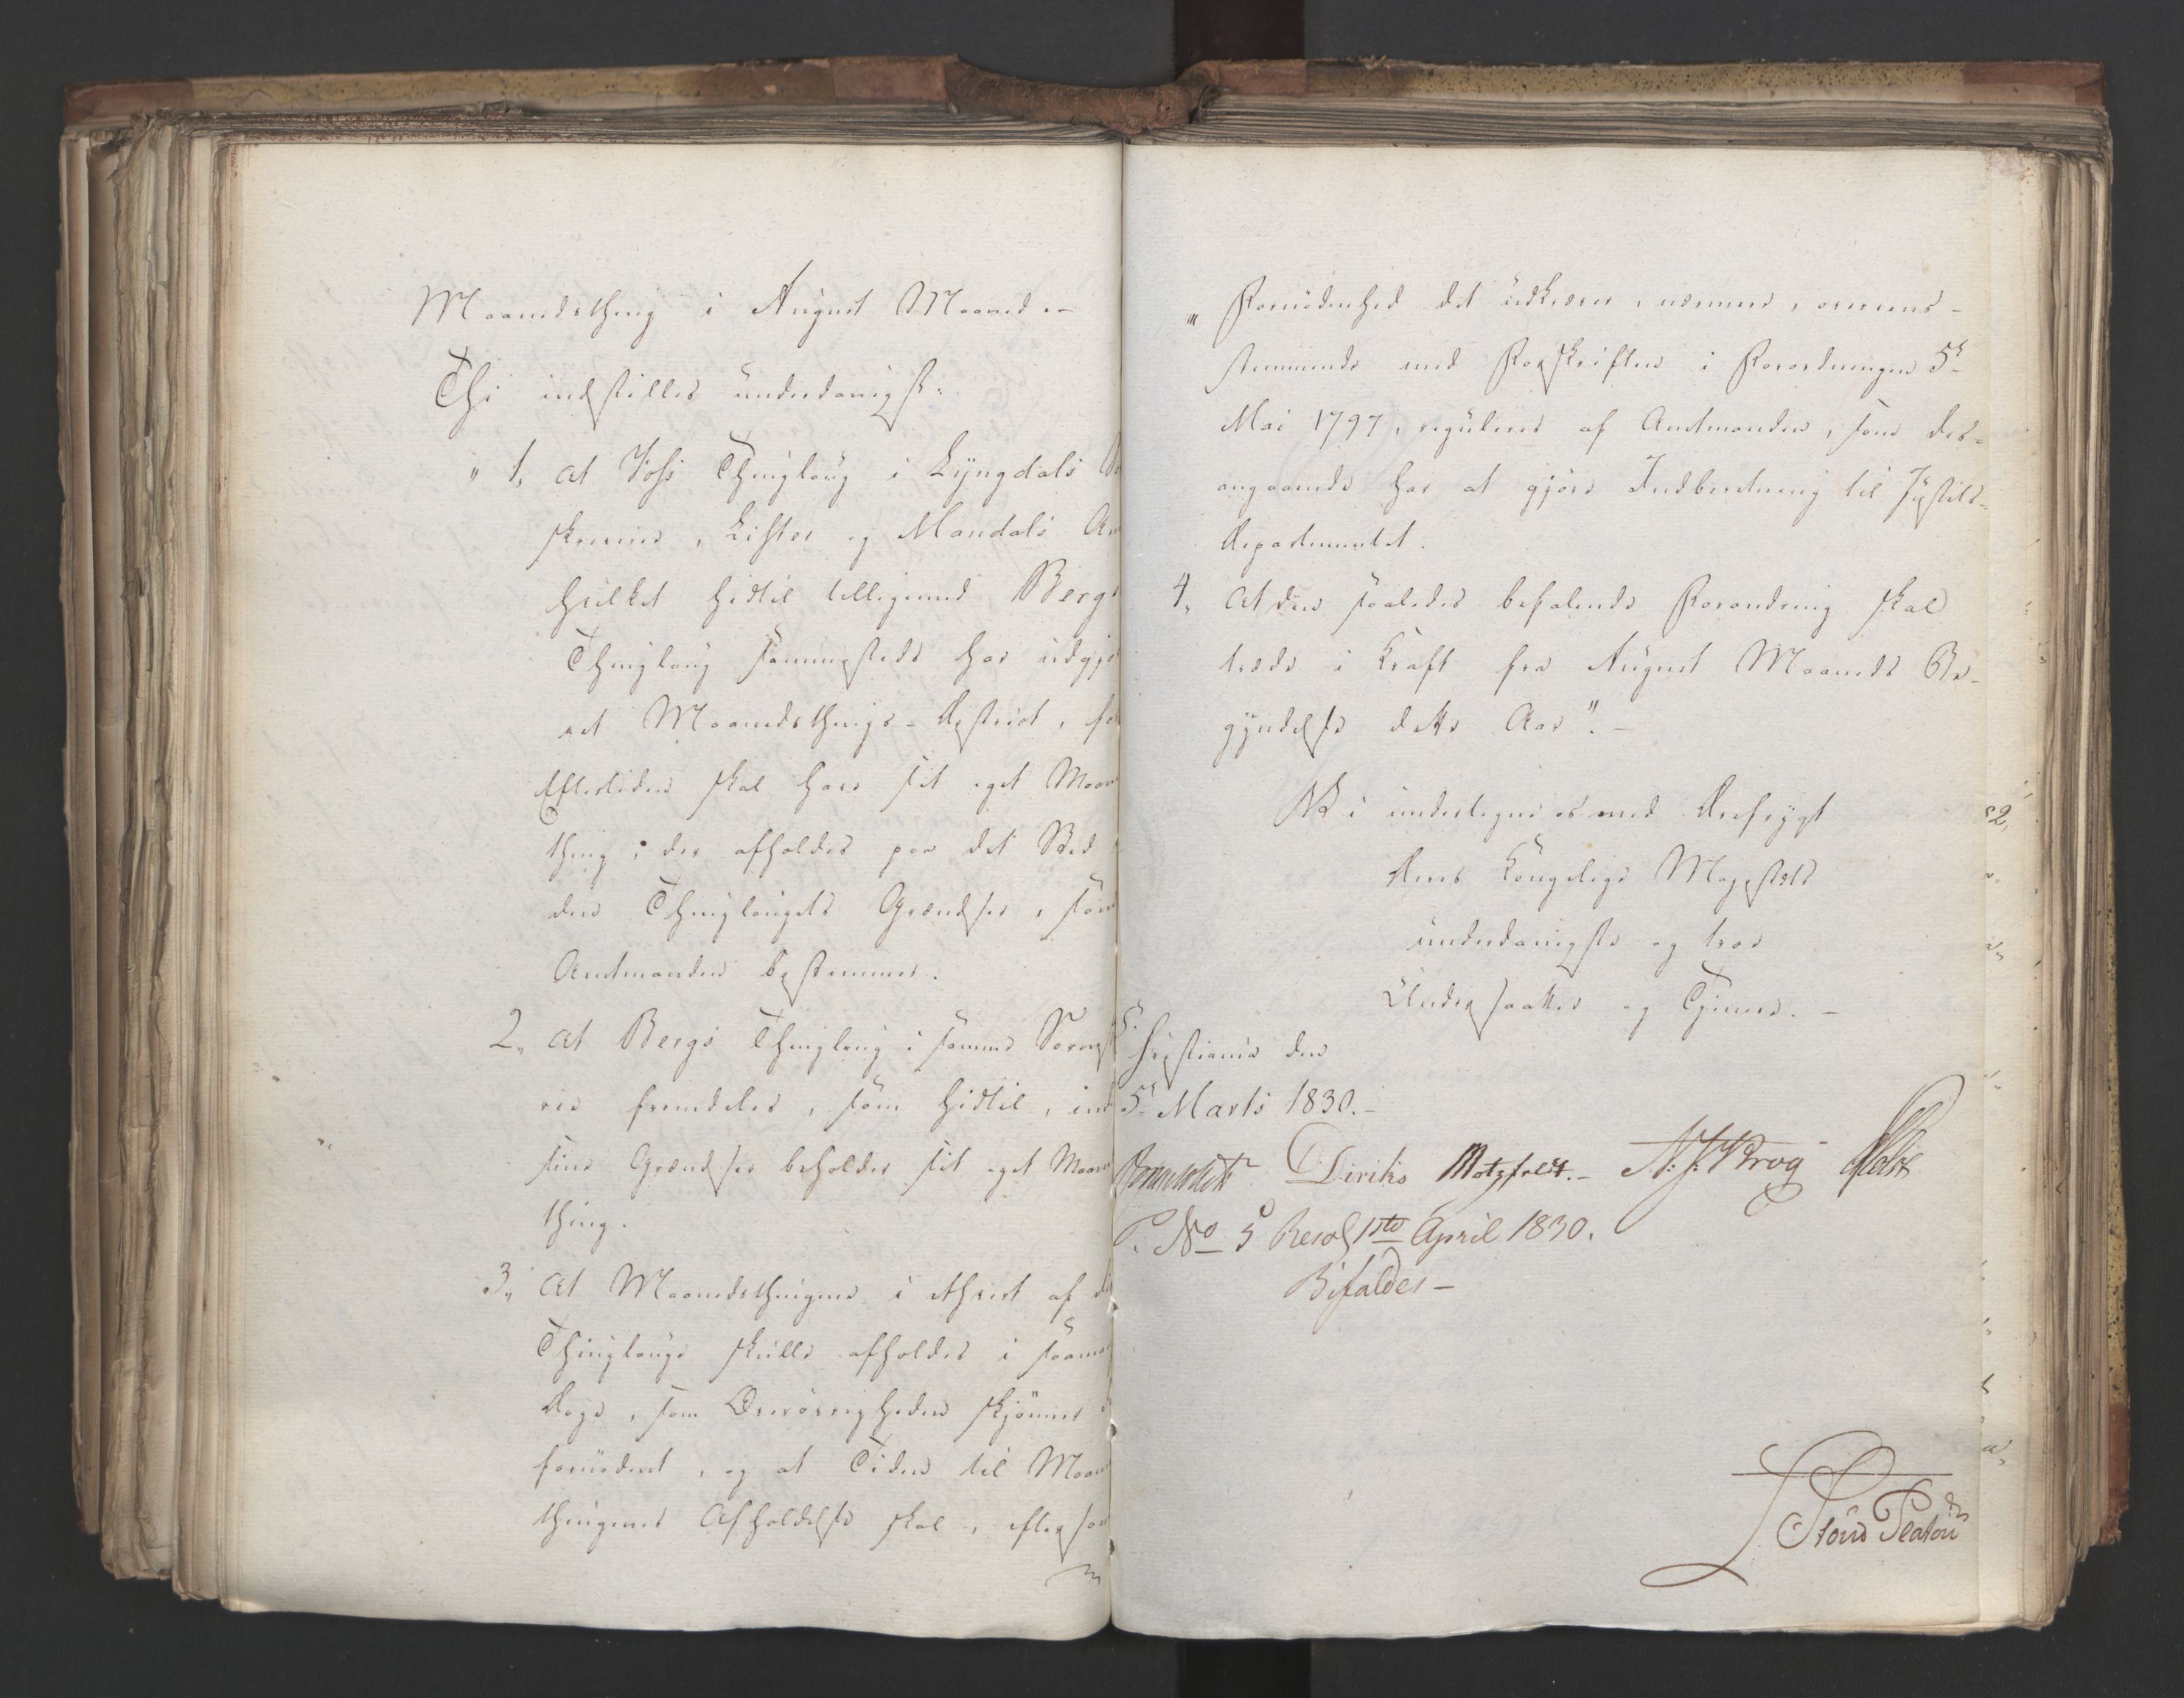 Maanedsthing i August Maaned.-
Thi indstilles underdanigst:
" 1, at Foss Thinglaug i Lyngdals So
skriverie, Lister og Mandals Am
hvilket hidtil tilligemed Bergs
Thinglaug sammesteds har udgjo
ret Maanedsthings-District, for
Eftertiden skal have sit eget Maan
thing, der afholdes paa det Sted
den Thinglaugets Grændser, som
Amtmanden bestemmer.
2, at Bergs Thinglaug i samme Sorensk
rie fremdeles, som hidtil, ind
sine Grændser beholder sit eget Maan
thing.
3, at Maanedsthingene i ethvert af di
Thinglauge skulle afholdes i saama
Dage, som Øvrigheden skjønner
fornødent, og at Tiden til Maan
thingenes Afholdelse skal, eftersom
" Fornødenhed det udkræver, nærmere, overeens-
stemmende med Forskriften i Forordningen 5te
Mai 1797, reguleres af Amtmanden, som des-
angaaende har at gjøre Indberetning til Justits-
Departementet.
4, at den saaledes befalende Forandring skal
træde i Kraft fra August Maaneds Be-
gyndelse dette Aar".-
Vi undertegne os med Ærefrygt
Deres Kongelige Majestæts
underdanigste og troe
Undersaatter og Tjenere.-
Christiania den
5te Marts 1830.-
Diriks Motzfeldt.- N. J. Krog Holst
P. No 5 Resol 1ste April 1830.
Bifaldes-
Stoud Platou